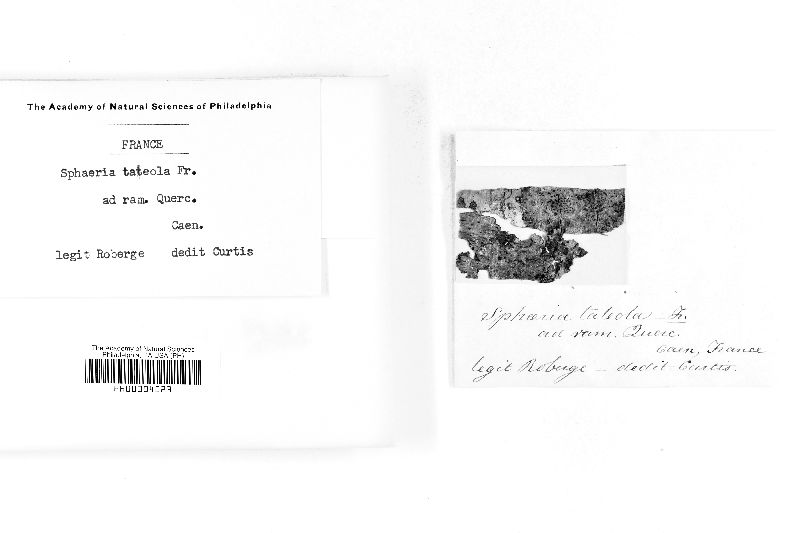 The Academy of Natural Sciences of Philadelphia
FRANCE
Sphaeria tateola Fr.
ad ram. Querc.
Caen.
legit Roberge dedit Curtis
The Academy of Natural Sciences
Philadelphia, PA USA (PH)
Sphaeria taleola Fr.
ad ram. Querc.
Caen, France
legit Roberge – dedit Curtis.